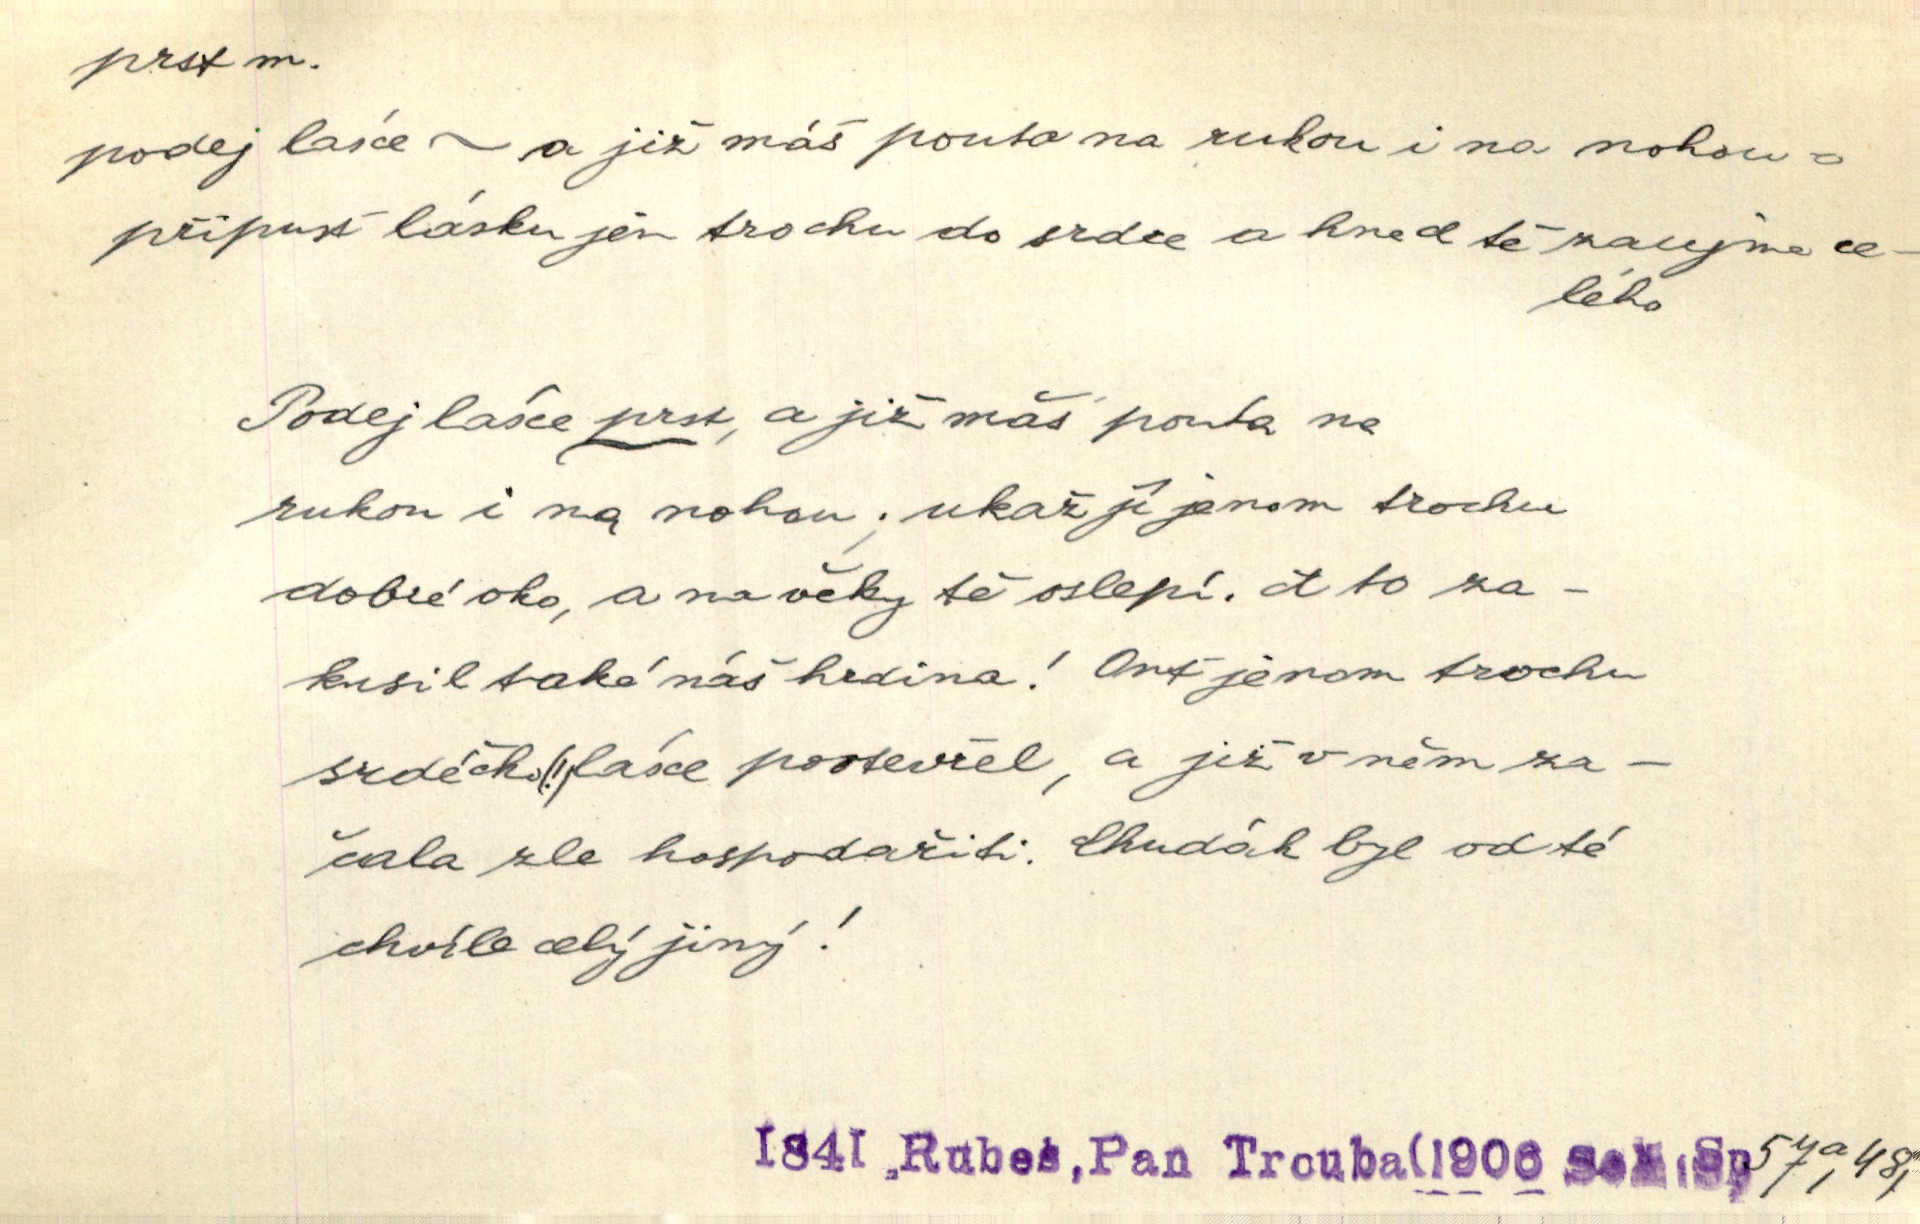 prst m.
podej lásce ~ a již máš pouta na rukou i na nohou =
připusť lásku jen trochu do srdce a hned tě zaujme ce-
lého
Podej lásce prst, a již máš pouta na
rukou i na nohou; ukaž jí jenom trochu
dobré oko, a na věky tě oslepí. A to za-
kusil také náš hrdina! Onť jenom trochu
srdéčko(!) lásce pootevřel, a již v něm za-
čala zle hospodařiti. Chudák byl od té
chvíle celý jiný!
1841 Rubeš, Pan Trouba (1906 Seb. Sp 48,